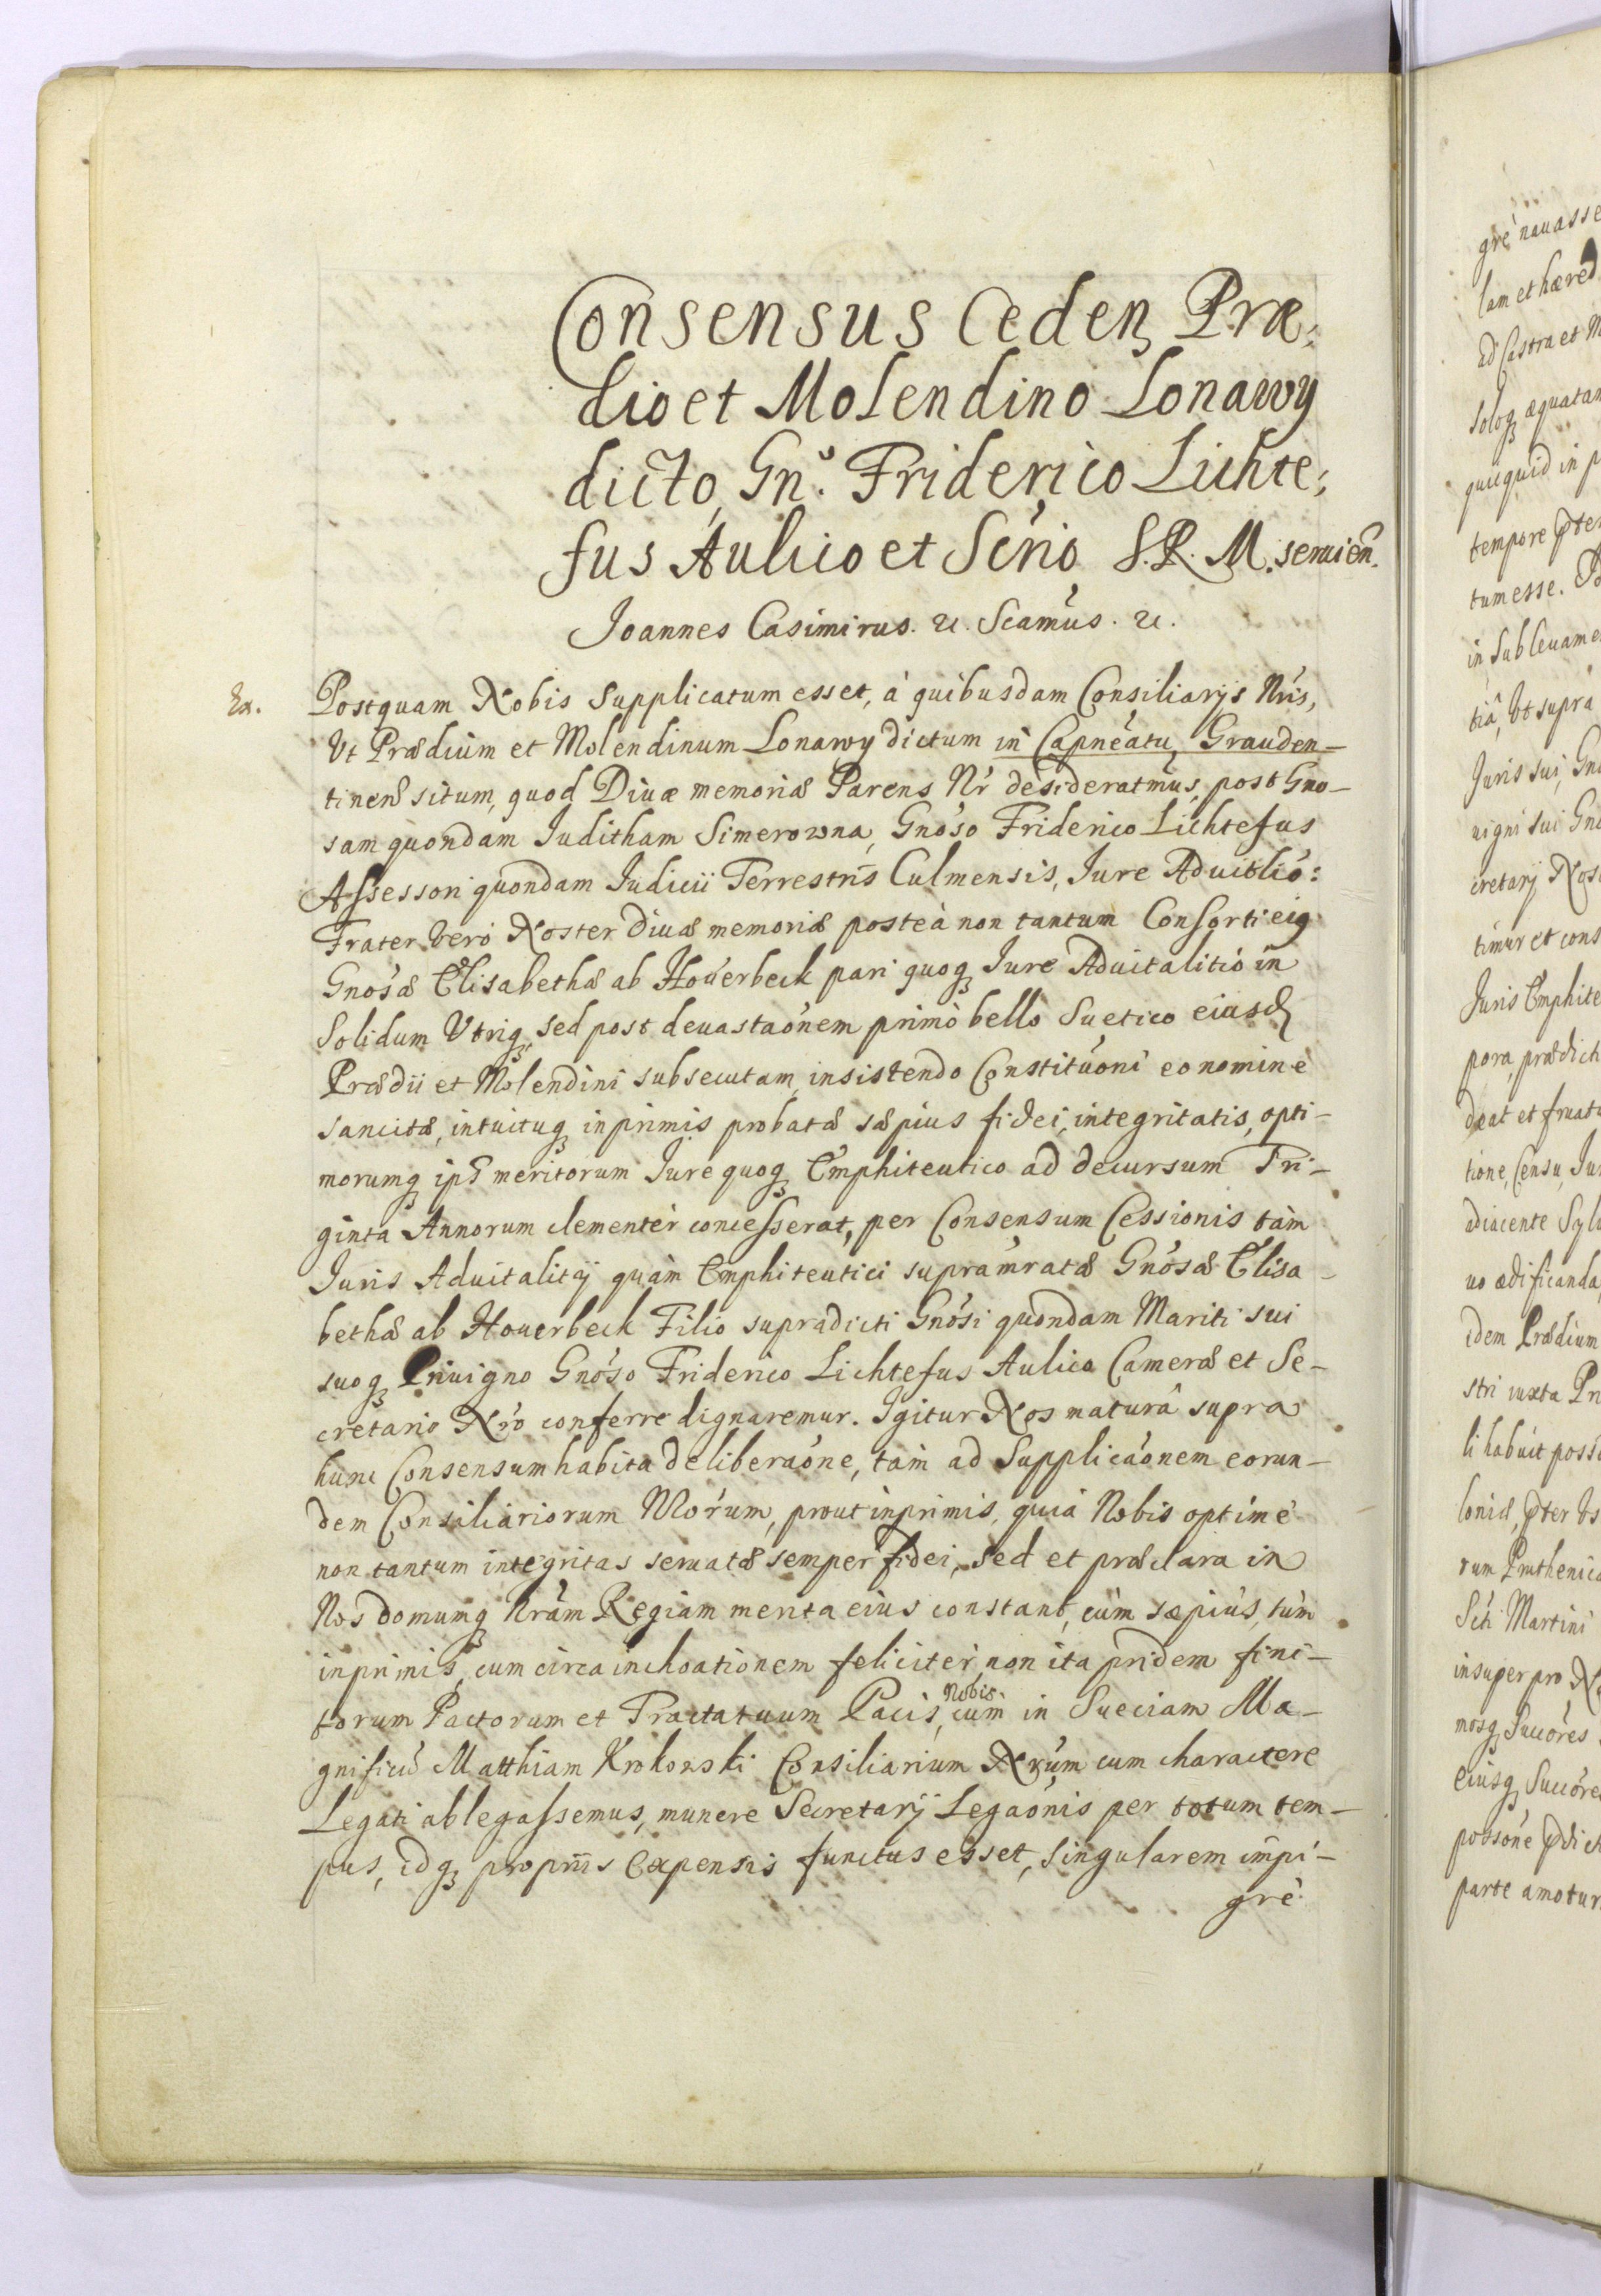 Consensus Cedenꝫ Præ:
dio et Molendino Lonawy
dicto, Gn.º Friderico Lichte:
fus Aulico et Scr̃io S. R. M. seruien̄.
Joannes Casimirus. ꝛc. Scamus. ꝛc.
Ex.
Postquam Nobis Supplicatum esset, à quibusdam Consiliarijs Nr̃is,
Vt Prædium et Molendinum Lonawy dictum in Capneatu Grauden-
tinen̄ situm, quod Diuæ memoriæ Parens Nr̃ desideratmus, post Gno-
sam quondam Juditham Simerowna, Gnoso Friderico Lichtefus
Assessori quondam Judicii Terrestris Culmensis, Jure Aduitlio:
Frater Vero Noster diuæ memoriæ posteà non tantum Consorti eiꝗ
Gnosæ Elisabethæ ab Houerbeck pari quoqꝫ Jure Aduitalitio in
Solidum Vtriqꝫ, sed post deuastaonem primò bello Suetico eiusd
Prædii et Molendini subsecutam, insistendo Constitu̇oni eo nomine
sancitæ, intuituqꝫ inprimis probatæ sæpius fidei, integritatis, opti-
morumqꝫ ips̄ meritorum Jure quoqꝫ Emphiteutico ad decursum Tri-
ginta Annorum clementer concesserat, per Consensum Cessionis tàm
Juris Aduitalitij quàm Emphiteutici supramratæ Gnosæ Elisa-
bethæ ab Houerbeck Filio supradicti Gnosi quondam Mariti sui
suoqꝫ Priuigno Gnoso Friderico Lichtefus Aulico Cameræ et Se-
cretario Nr̃o conferre dignaremur. Igitur Nos maturâ supra
hunc Consensum habita deliberaone, tàm ad Supplicaonem eorun-
dem Consiliariorum Nr̃orum, prout inprimis, quia Nobis optimè
non tantum integritas seruatæ semper fidei, sed et præclara in
Nos domumqꝫ Nr̃am Regiam merita eius constant, cùm sæpius, tùm
inprimis, cum circa inchoationem feliciter non ita pridem fini-
torum Pactorum et Tractatuum Pacis, Nobis cum in Sueciam Ma-
gnificũ Matthiam Krokowski Consiliarium Nr̃um cum charactere
Legati ablegassemus, munere Secretarij Legaonis per totum tem-
pus, idqꝫ propriis Expensis functus esset, singularem impi-
grè
grè nauasse
lam et hæred
ad Castra et
soloqꝫ æquatam
quicquid in
tempore
tum esse.
in Subleuame
tiâ, Vt supra
Juris sui, Gno
uigni sui Gno
cretarij Nos
timur et cons
Juris Emphite
pora, prædict
deat et fruatu
tione, Censu, Jur
adiacente Sylu
uo ædificanda
idem Prædium
stri iuxta Pri
li habuit poss
loniæ,
rum Pruthenico
Scti Martini
insuper pro
nosqꝫ Succores
eiusqꝫ Succore
possone
parte amotur